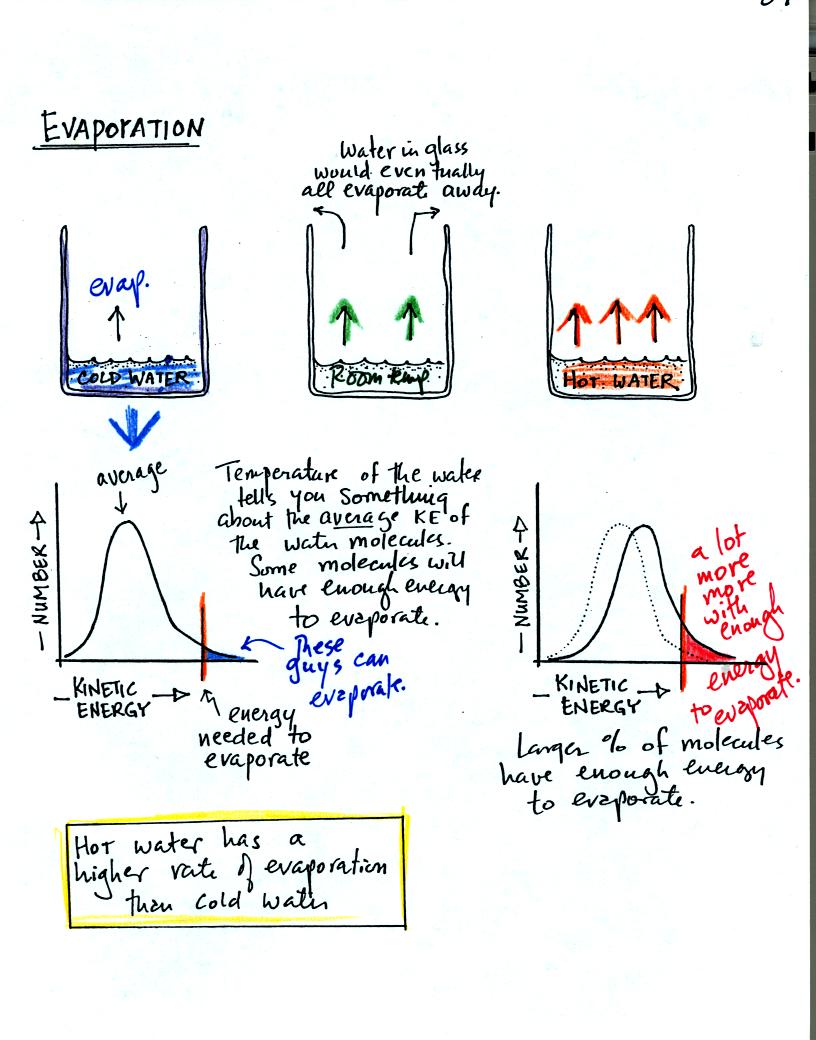 EVAPORATION
Water in glass
would eventually
all evaporate away.
evap.
COLD WATER
Room temp.
HOT WATER
average
Temperature of the water
tells you something
about the average KE of
the water molecules.
Some molecules will
have enough energy
to evaporate.
— NUMBER →
These
guys can
evaporate.
— KINETIC →
ENERGY
energy
needed to
evaporate
— NUMBER →
a lot
more
more
with
enough
energy
to evaporate.
— KINETIC →
ENERGY
Larger % of molecules
have enough energy
to evaporate.
Hot water has a
higher rate of evaporation
than cold water